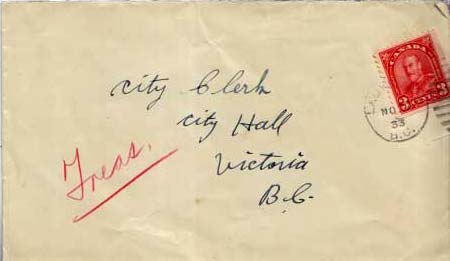 CANADA
3 CENTS 3
NO
33
B.C.
City Clerk
City Hall
Victoria
B.C.
Treas.